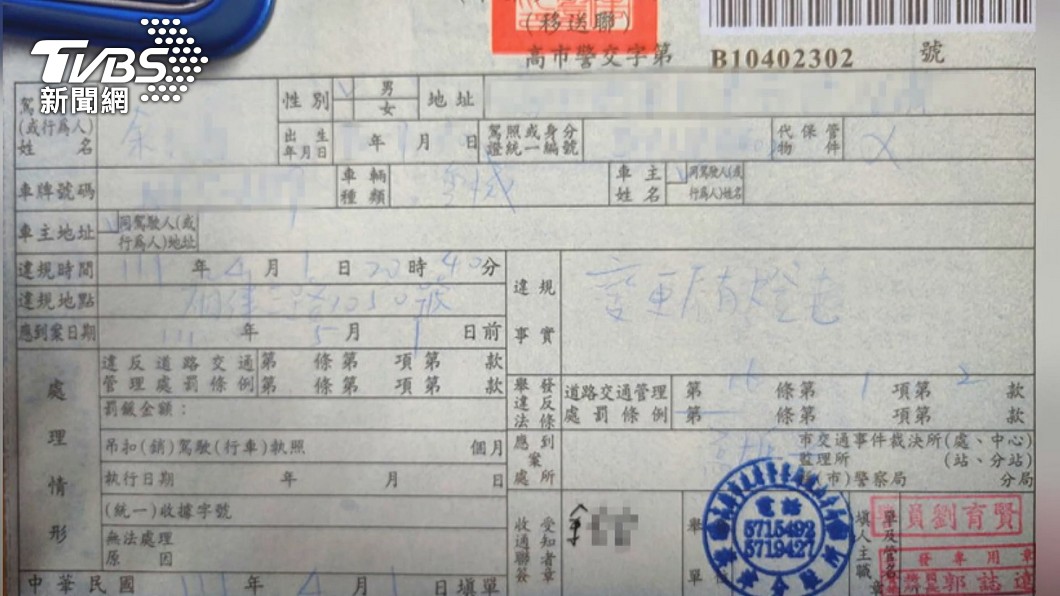 TVBS
新聞網
(移送聯)
高市警交字第 B10402302 號
駕駛人
(或行為人)
姓名
余
性別 男 女
地址
出生
年月日
年 月 日
駕照或身分
證統一編號
代保管
物件
車牌號碼
車輛
種類
車主
姓名
同駕駛人(或
行為人)姓名
車主地址
同駕駛人(或
行為人)地址
違規時間 111 年 4 月 1 日 20 時 40 分
違規地點 三路1050號
應到案日期 111 年 5 月 1 日前
違規
事實
變更原有燈色
處理情形
違反道路交通 第 條第 項第 款
管理處罰條例 第 條第 項第 款
罰鍰金額:
吊扣(銷)駕駛(行車)執照 個月
執行日期 年 月 日
(統一)收據字號
無法處理
原因
舉發
違反
法條
道路交通管理
處罰條例
第 16 條第 1 項第 2 款
第 條第 項第 款
應到
案
處所
市交通事件裁決所(處、中心)
監理所 (站、分站)
(市)警察局 分局
收受
通知
聯者
簽章
舉
單
電話
5715492
5719427
填
人
職
章
員劉育賢
發專用章
郭誌
中華民國 111 年 4 月 1 日填單